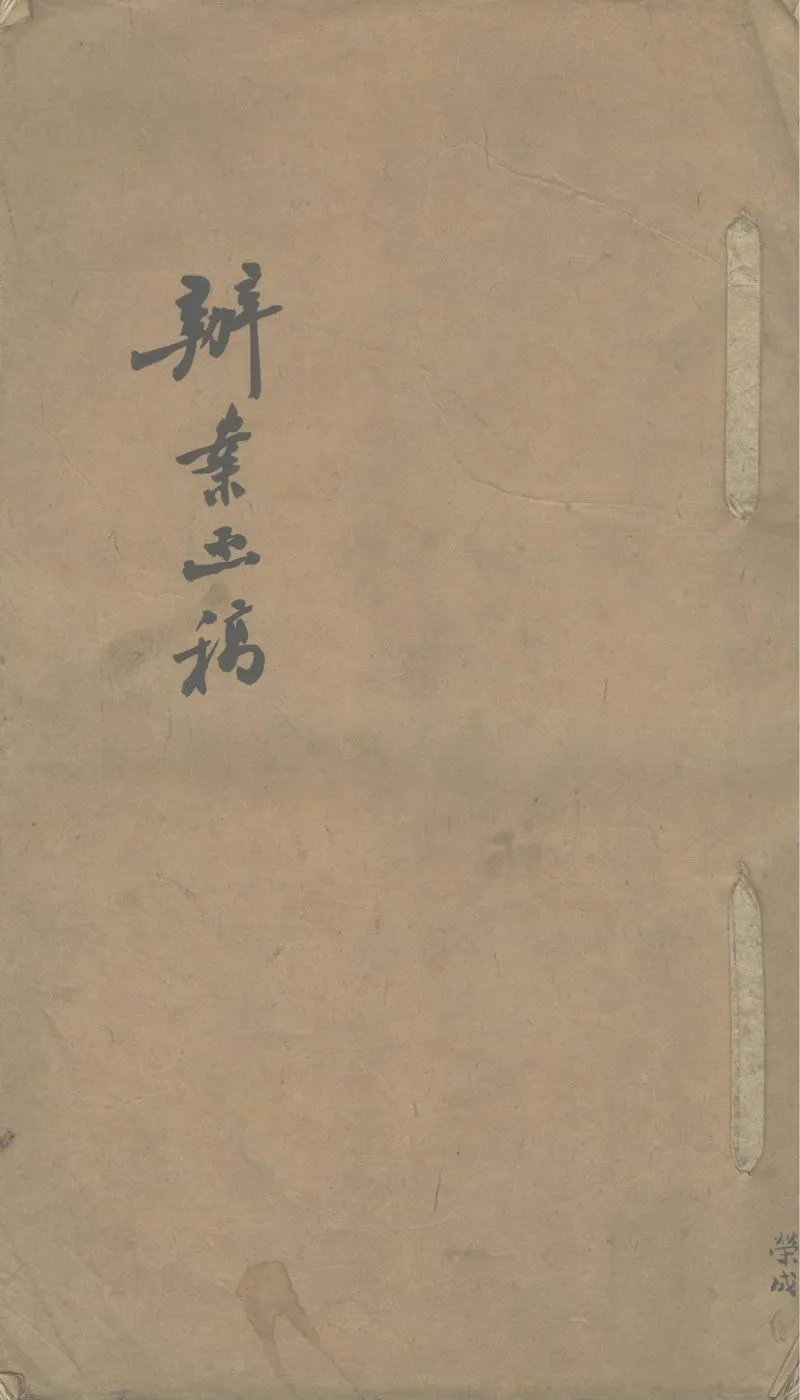 辦案函稿
榮成